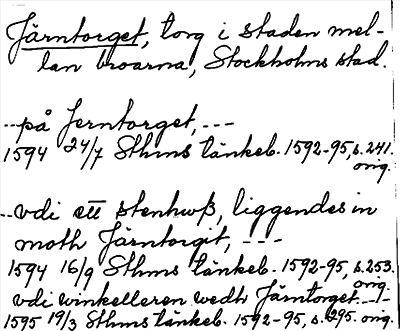 Järntorget, torg i staden mel-
lan broarna, Stockholms stad.
--på Jerntorget, ---
1594 24/7 Sthms tänkeb. 1592-95, s. 241.
orig.
--vdi ett stenhwß, liggendes in
moth Järntorgit, ---
1594 16/9 Sthms tänkeb. 1592-95, s. 253.
orig.
vdi winkelleren wedh Järntorget.---
1595 19/3 Sthms tänkeb. 1592-95, s. 295. orig.